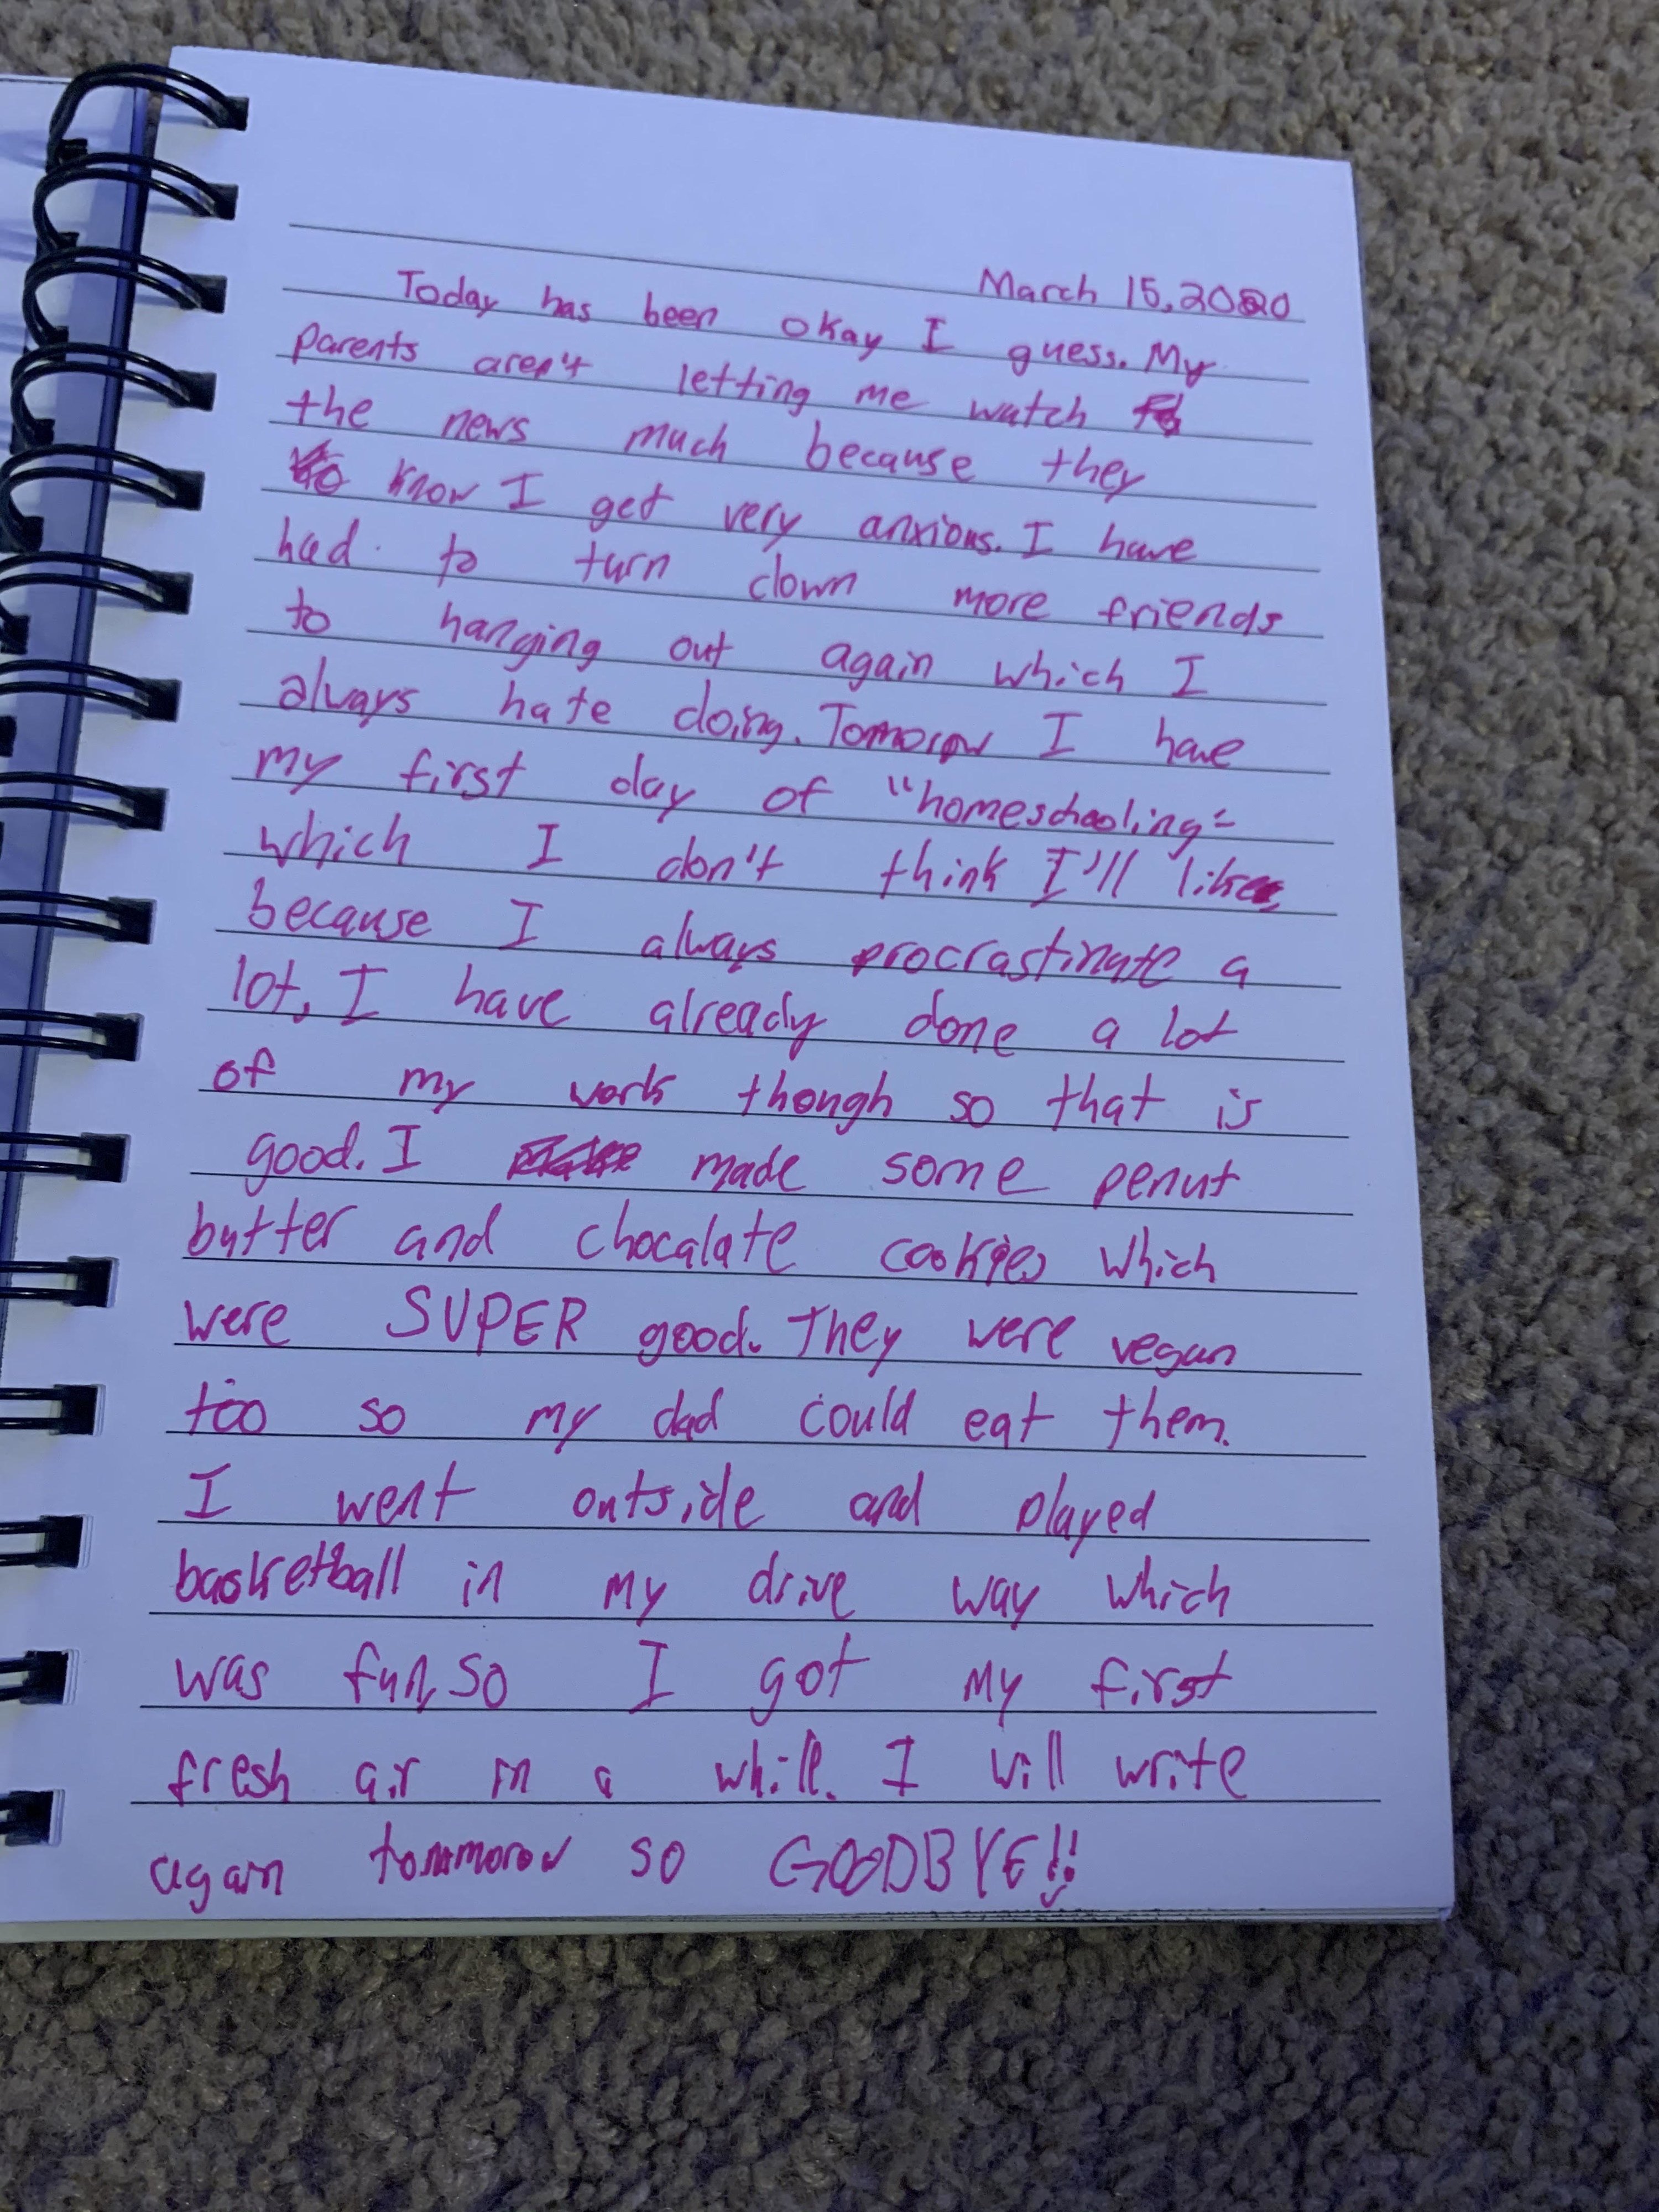 March 15, 2020
Today has been okay I guess. My
parents aren't letting me watch
the news much because they
know I get very anxious. I have
had to turn down more friends
to hanging out again which I
always hate doing. Tomorow I have
my first day of "homeschooling"
which I don't think I'll like
because I always procrastinate a
lot, I have already done a lot
of my work though so that is
good. I made some penut
butter and chocalate cookies which
were SUPER good. They were vegan
too so my dad could eat them.
I went outside and played
basketball in my drive way which
was fun, so I got my first
fresh air in a while. I will write
again tommorow so GOODBYE!!